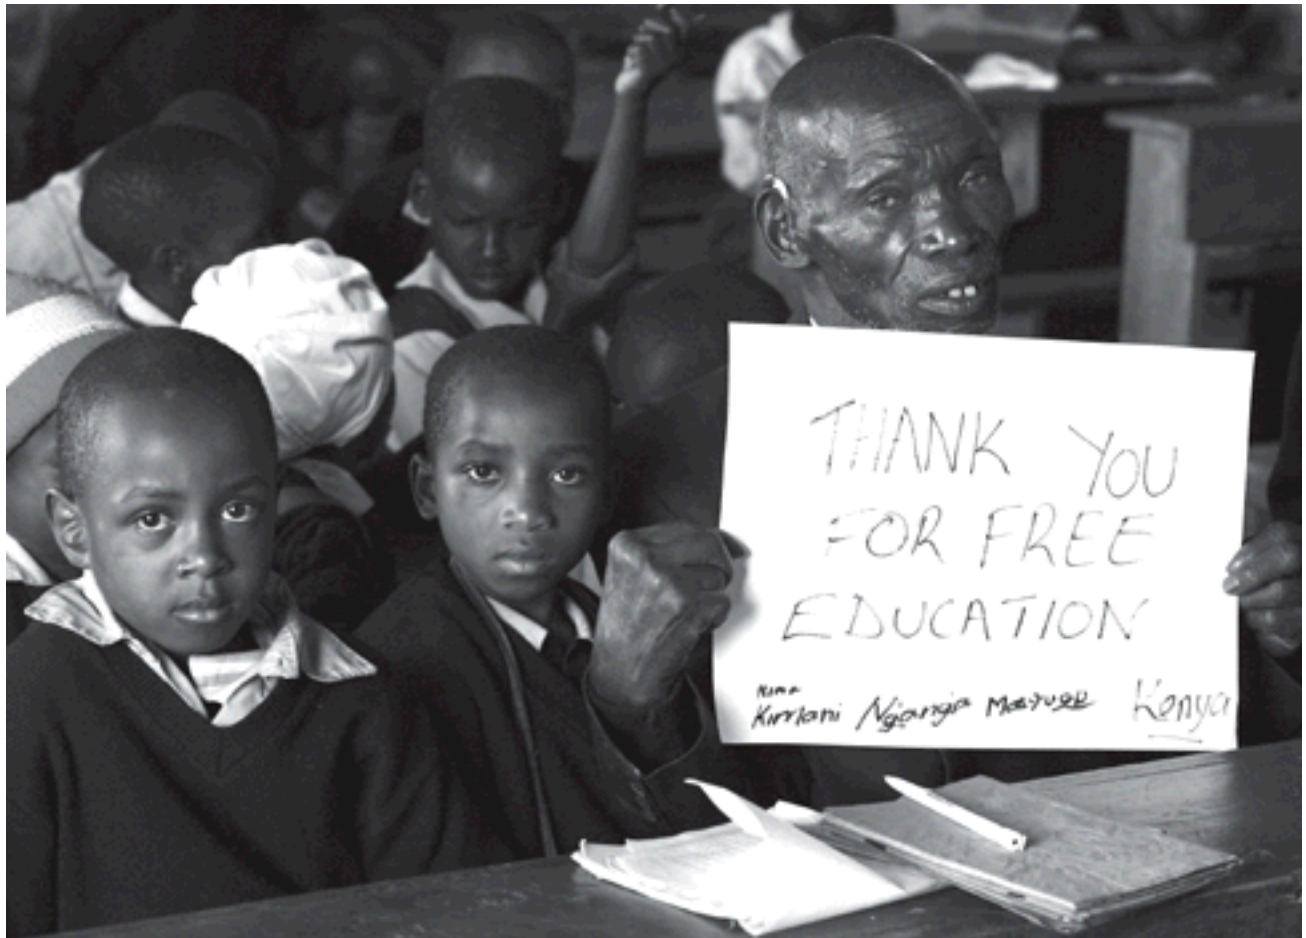 THANK YOU
FOR FREE
EDUCATION
Kimani Ngangia Maruge Kenya